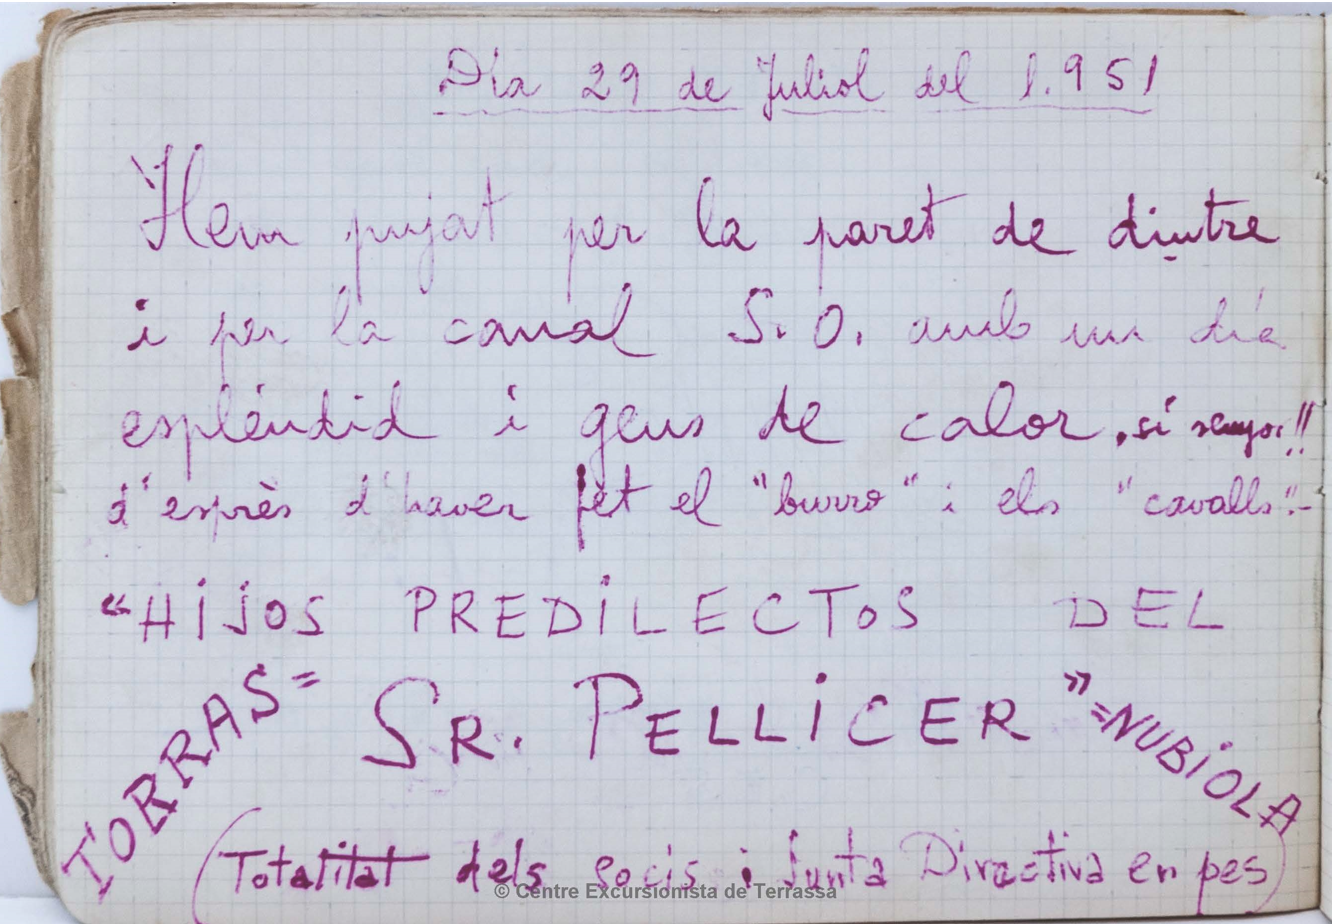 Día 29 de Juliol del 1.951
Hem pujat per la paret de dintre
i per la canal S.O. amb un día
espléndid i gens de calor, sí senyor!!
d'esprès d'haver fet el "burro" i els "cavalls".-
"HIJOS PREDILECTOS DEL
SR. PELLICER"
TORRAS=
=NUBIOLA
(Totalitat dels socis i Junta Directiva en pes)
© Centre Excursionista de Terrassa